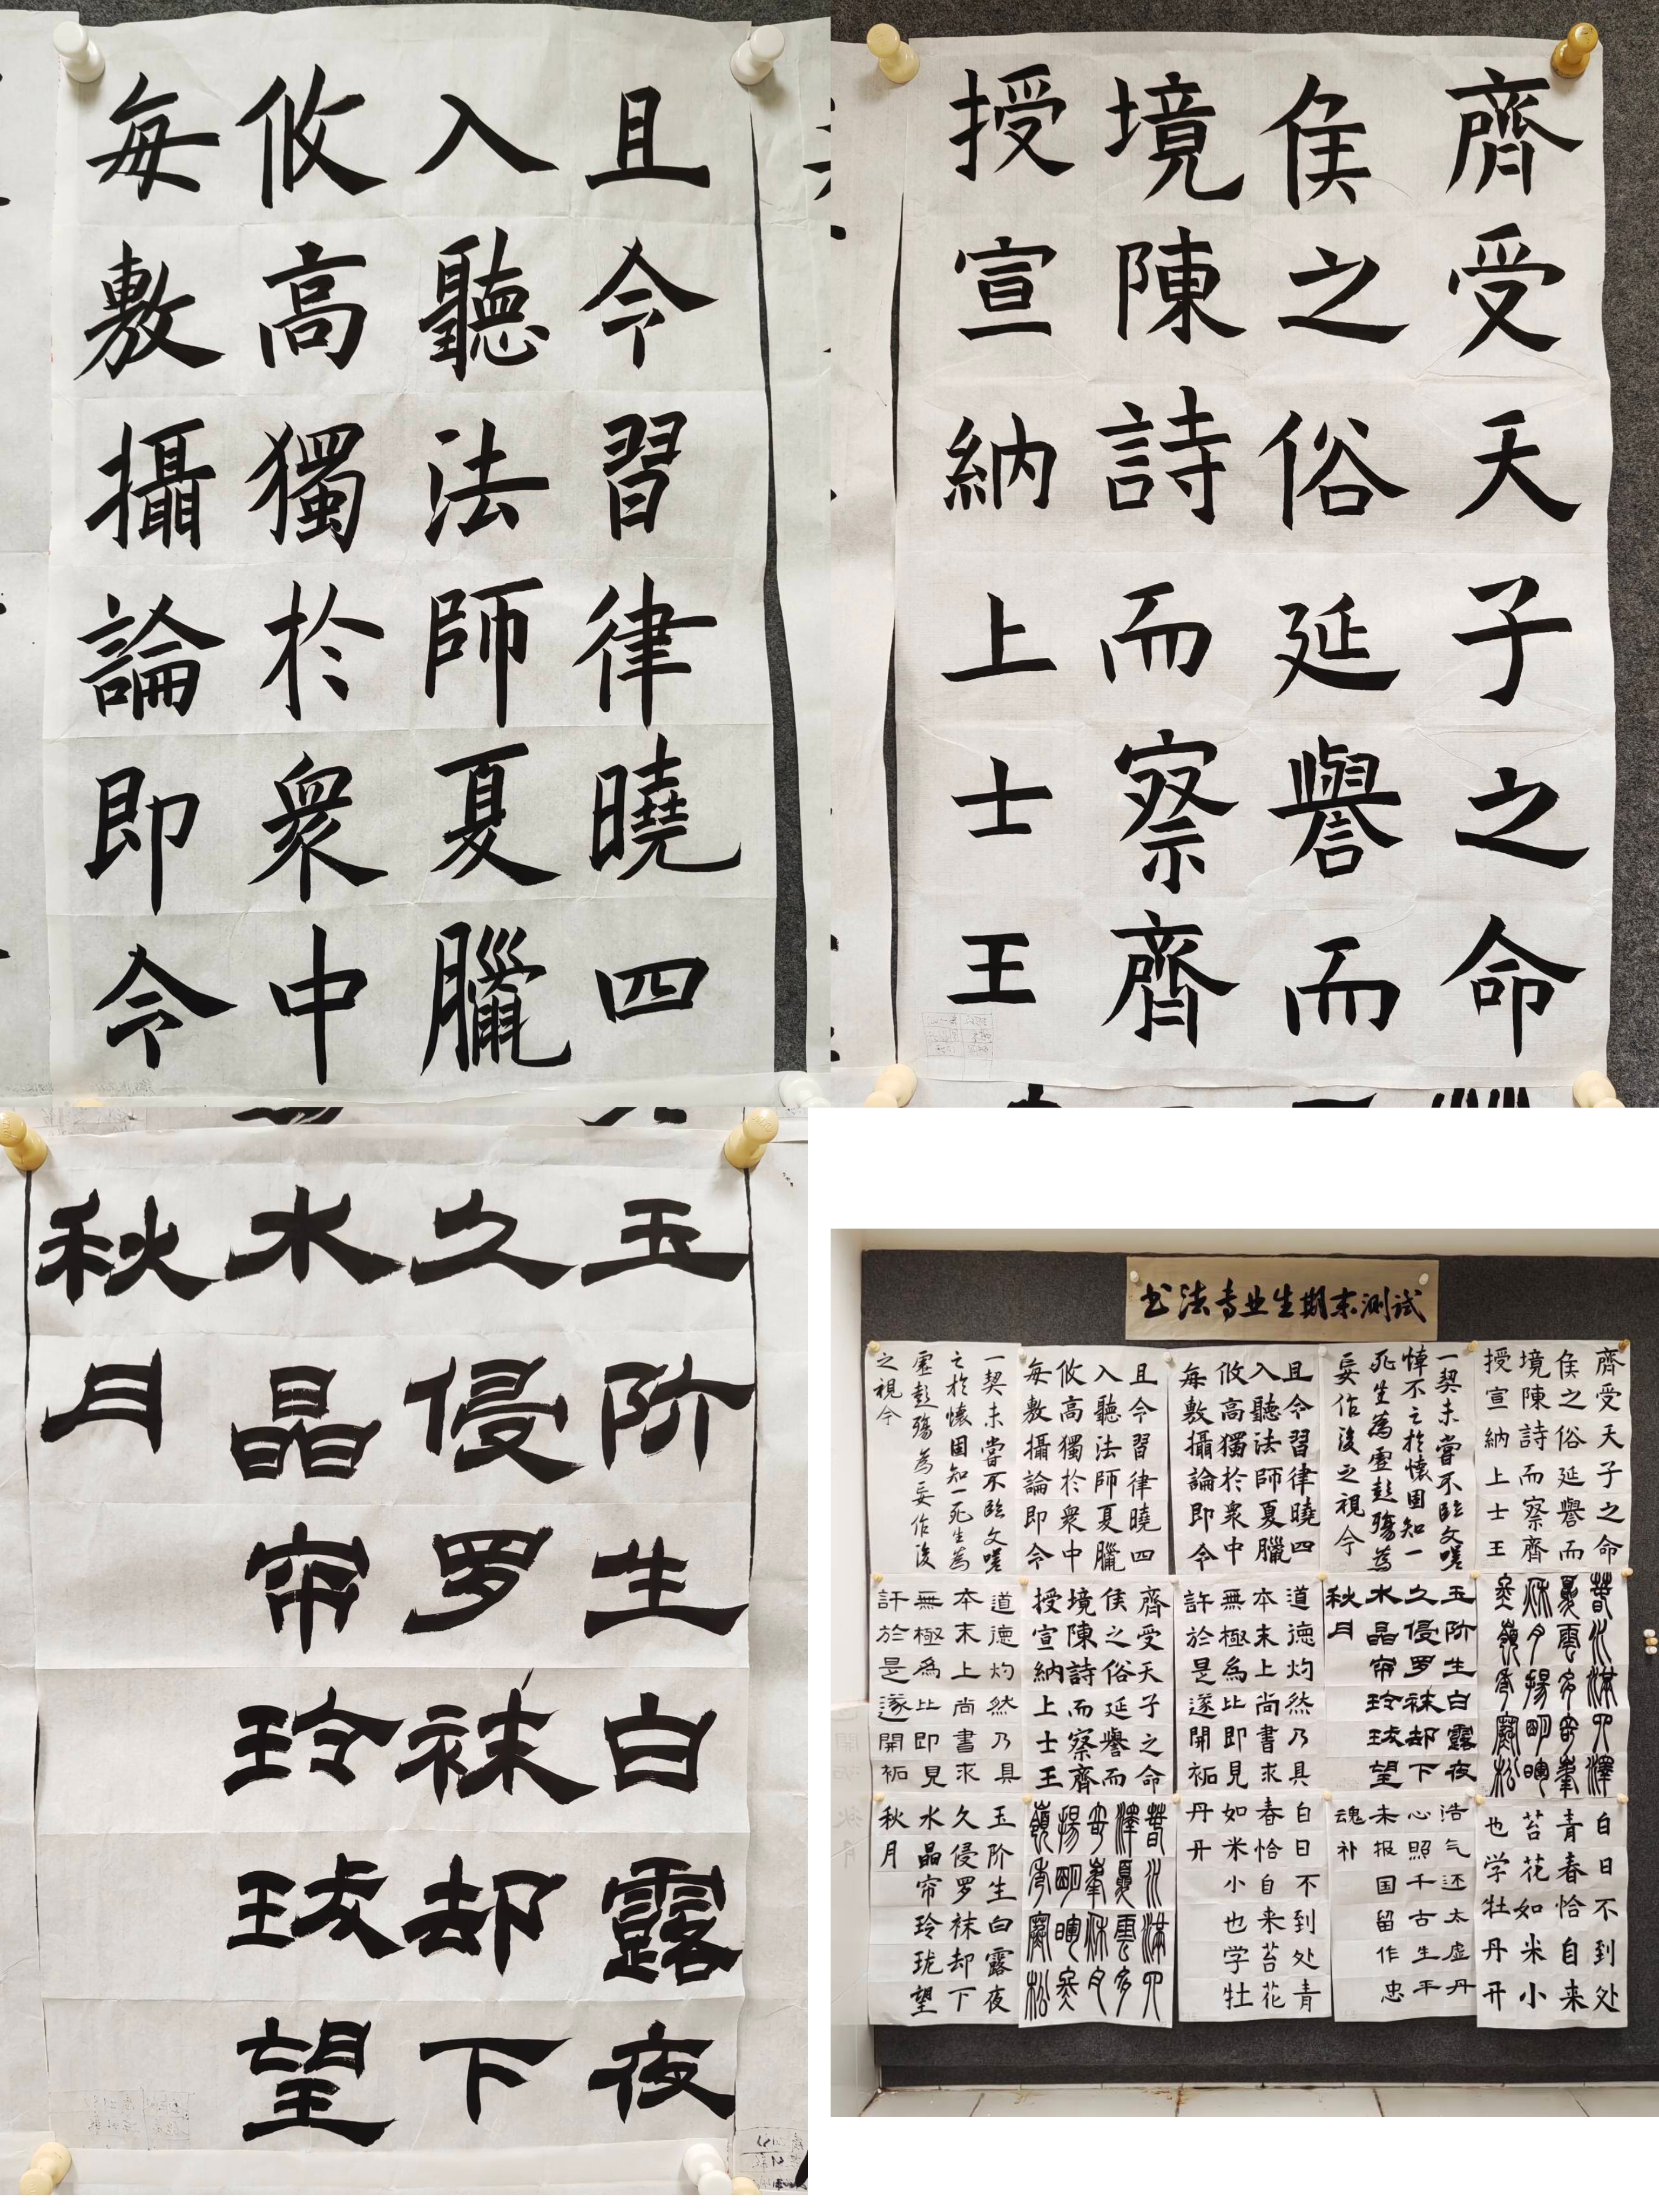 且令習律曉四
入聽法師夏臘
攸高獨於衆中
每敷攝論即令
齊受天子之命
侯之俗延譽而
境陳詩而察齊
授宣納上士王
玉阶生白露夜
久侵罗袜却下
水晶帘玲珑望
秋月
书法专业生期末测试
齊受天子之命
侯之俗延譽而
境陳詩而察齊
授宣納上士王
一契未嘗不臨文嗟
悼不之於懷固知一
死生為虛彭殤為
妄作後之視今
且令習律曉四
入聽法師夏臘
攸高獨於衆中
每敷攝論即令
且令習律曉四
入聽法師夏臘
攸高獨於衆中
每敷攝論即令
一契未嘗不臨文嗟
之於懷固知一死生為
虛彭殤為妄作後
之視今
春水滿四澤
夏雲多奇峯
秋月揚明暉
冬嶺秀寒松
玉阶生白露夜
久侵罗袜却下
水晶帘玲珑望
秋月
道德灼然乃具
本末上尚書求
無極為比即見
許於是遂開祏
齊受天子之命
侯之俗延譽而
境陳詩而察齊
授宣納上士王
道德灼然乃具
本末上尚書求
無極為比即見
許於是遂開祏
白日不到处
青春恰自来
苔花如米小
也学牡丹开
浩气还太虚丹
心照千古生平
未报国留作忠
魂补
白日不到处青
春恰自来苔花
如米小也学牡
丹丹
春水滿四
澤夏雲多
奇峯秋月
揚明暉冬
嶺秀寒松
玉阶生白露夜
久侵罗袜却下
水晶帘玲珑望
秋月